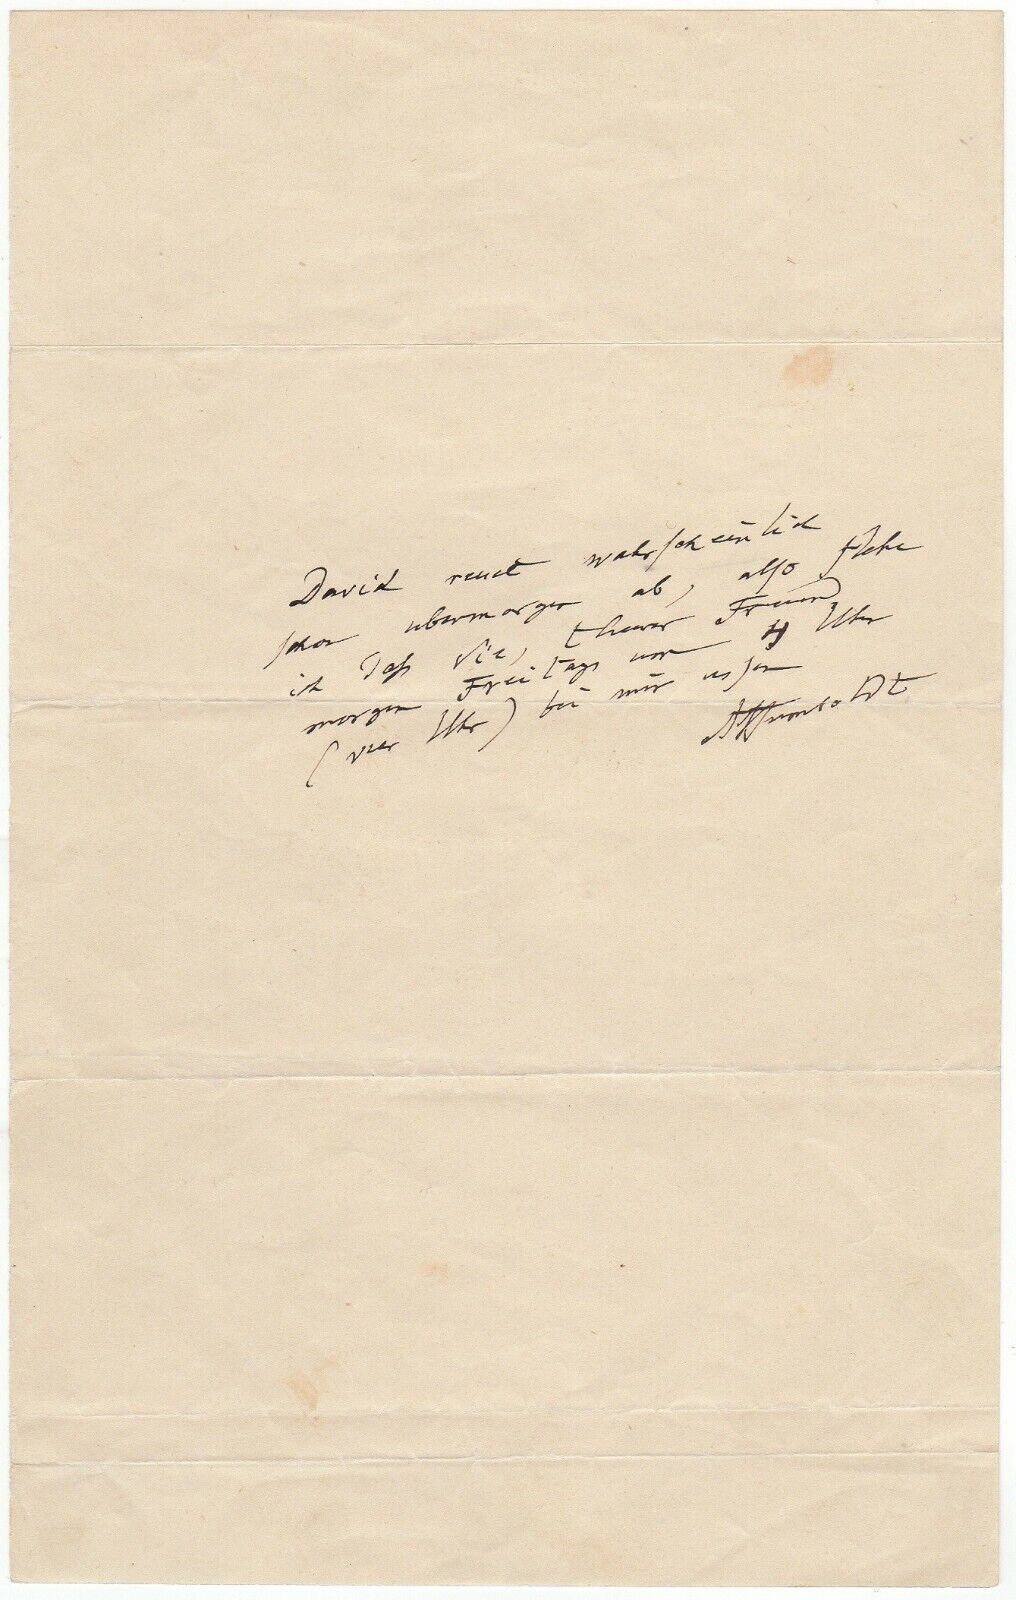 David reist wahrscheinlich
schon übermorgen ab, also flehe
ich daß Sie, theurer Freund
morgen Freitags um 4 Uhr
(vier Uhr) bei mir essen
AHumboldt